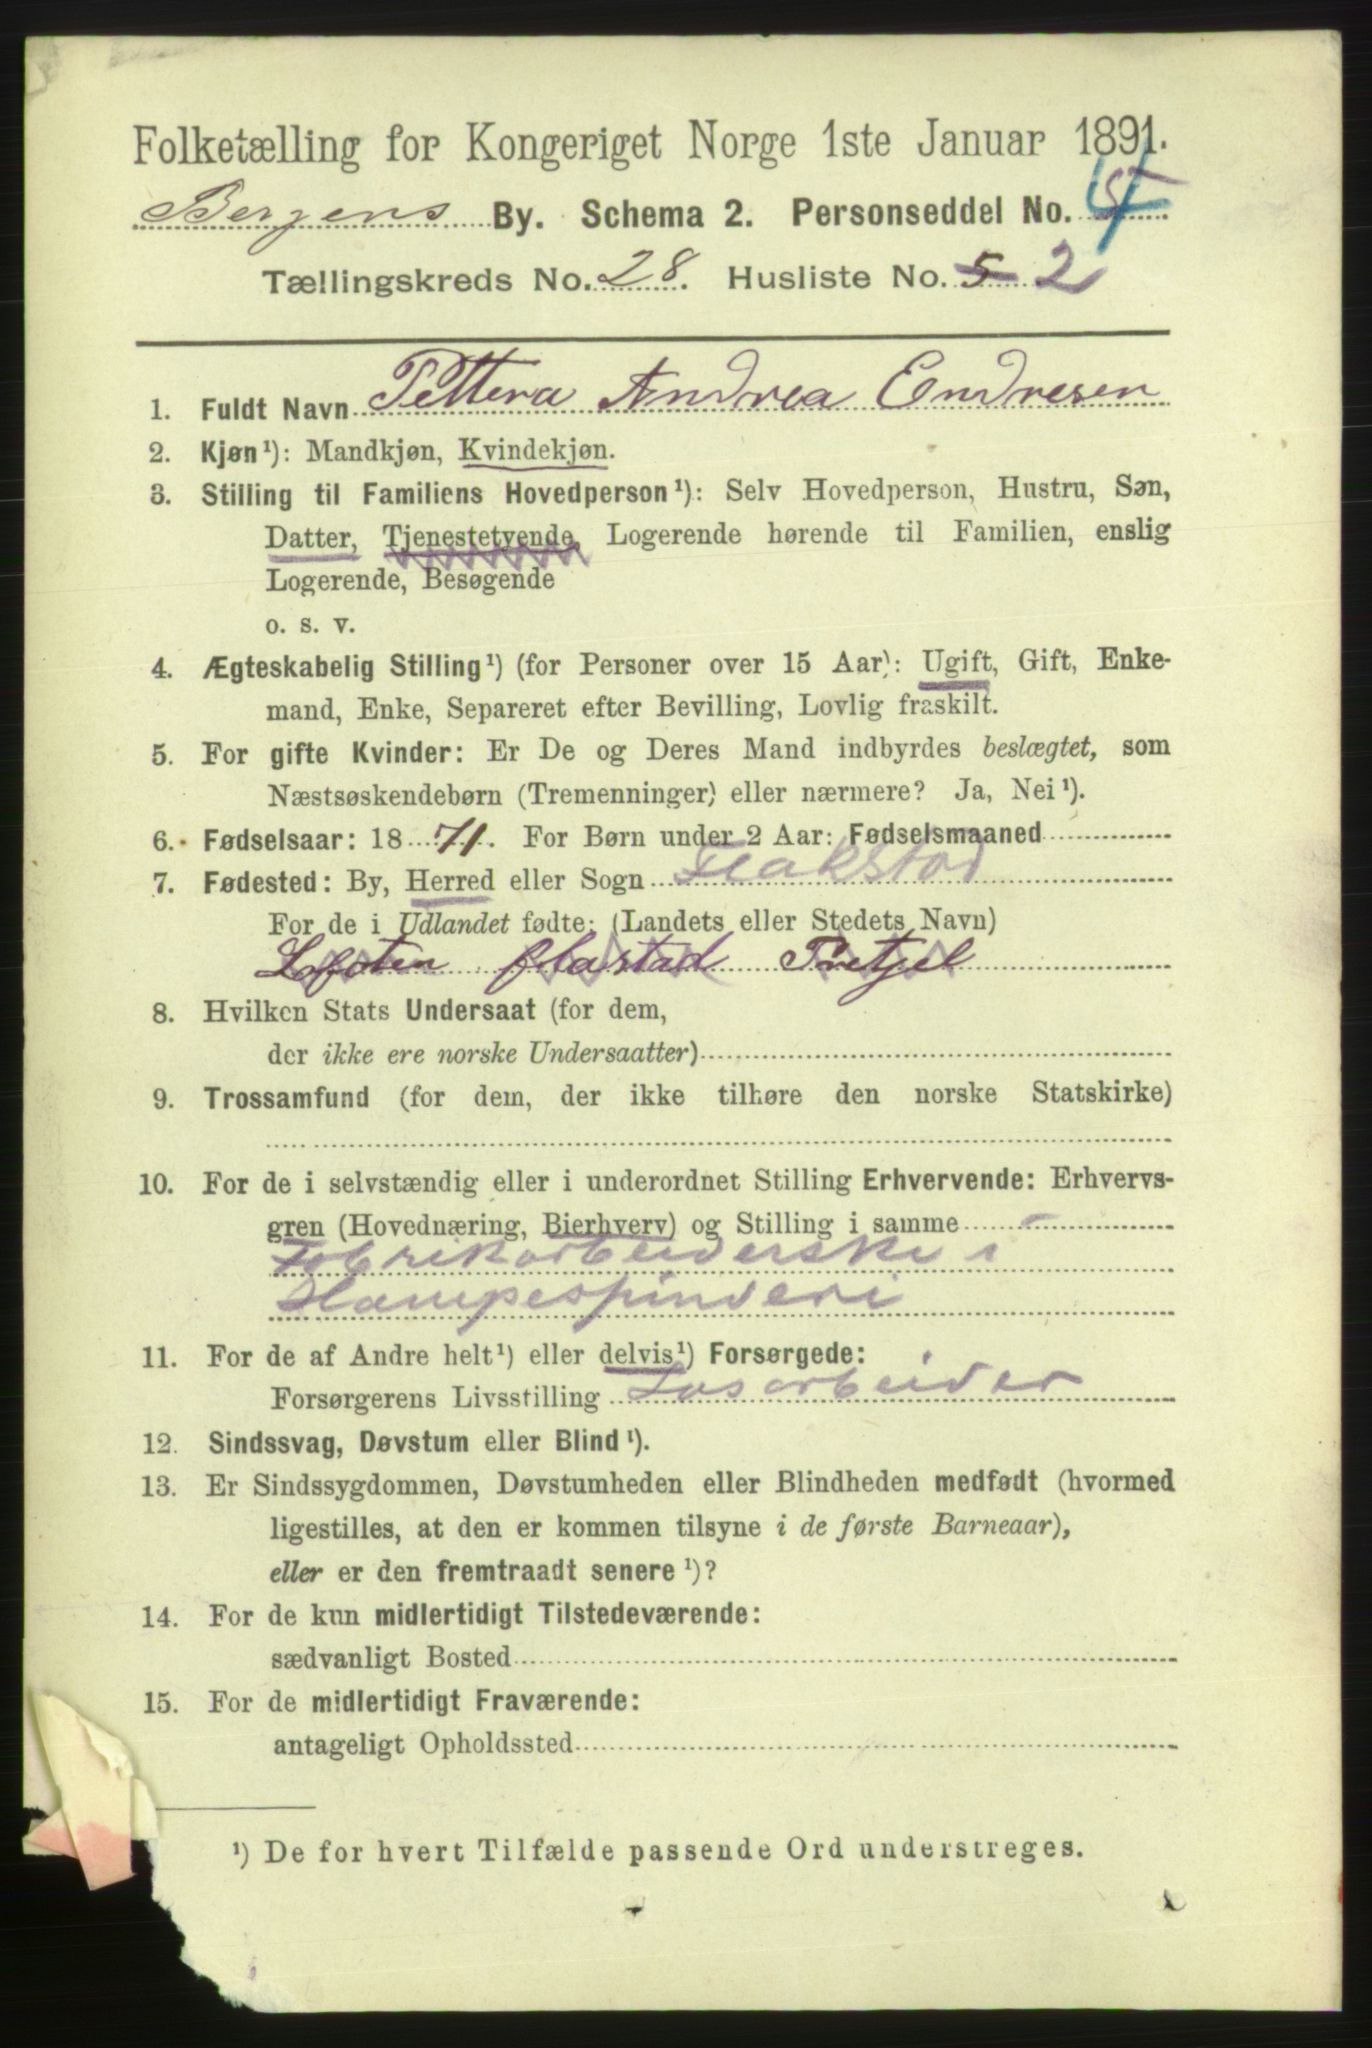 Folketælling for Kongeriget Norge 1ste Januar 1891.
Bergens By. Schema 2. Personseddel No. 4
Tællingskreds No. 28. Husliste No. 5 2
1. Fuldt Navn Pettera Andrea Endresen
2. Kjøn¹): Mandkjøn, Kvindekjøn.
3. Stilling til Familiens Hovedperson¹): Selv Hovedperson, Hustru, Søn,
Datter, Tjenestetyende, Logerende hørende til Familien, enslig
Logerende, Besøgende
o. s. v.
4. Ægteskabelig Stilling¹) (for Personer over 15 Aar): Ugift, Gift, Enke-
mand, Enke, Separeret efter Bevilling, Lovlig fraskilt.
5. For gifte Kvinder: Er De og Deres Mand indbyrdes beslægtet, som
Næstsøskendebørn (Tremenninger) eller nærmere? Ja, Nei¹).
6. Fødselsaar: 18 71. For Børn under 2 Aar: Fødselsmaaned
7. Fødested: By, Herred eller Sogn Flakstad
For de i Udlandet fødte: (Landets eller Stedets Navn)
Lofoten flastad
8. Hvilken Stats Undersaat (for dem,
der ikke ere norske Undersaatter)
9. Trossamfund (for dem, der ikke tilhøre den norske Statskirke)
10. For de i selvstændig eller i underordnet Stilling Erhvervende: Erhvervs-
gren (Hovednæring, Bierhverv) og Stilling i samme
Fabrikarbeiderske i
Hampespinderi
11. For de af Andre helt¹) eller delvis¹) Forsørgede:
Forsørgerens Livsstilling Løsarbeider
12. Sindssvag, Døvstum eller Blind¹).
13. Er Sindssygdommen, Døvstumheden eller Blindheden medfødt (hvormed
ligestilles, at den er kommen tilsyne i de første Barneaar),
eller er den fremtraadt senere¹)?
14. For de kun midlertidigt Tilstedeværende:
sædvanligt Bosted
15. For de midlertidigt Fraværende:
antageligt Opholdssted
¹) De for hvert Tilfælde passende Ord understreges.